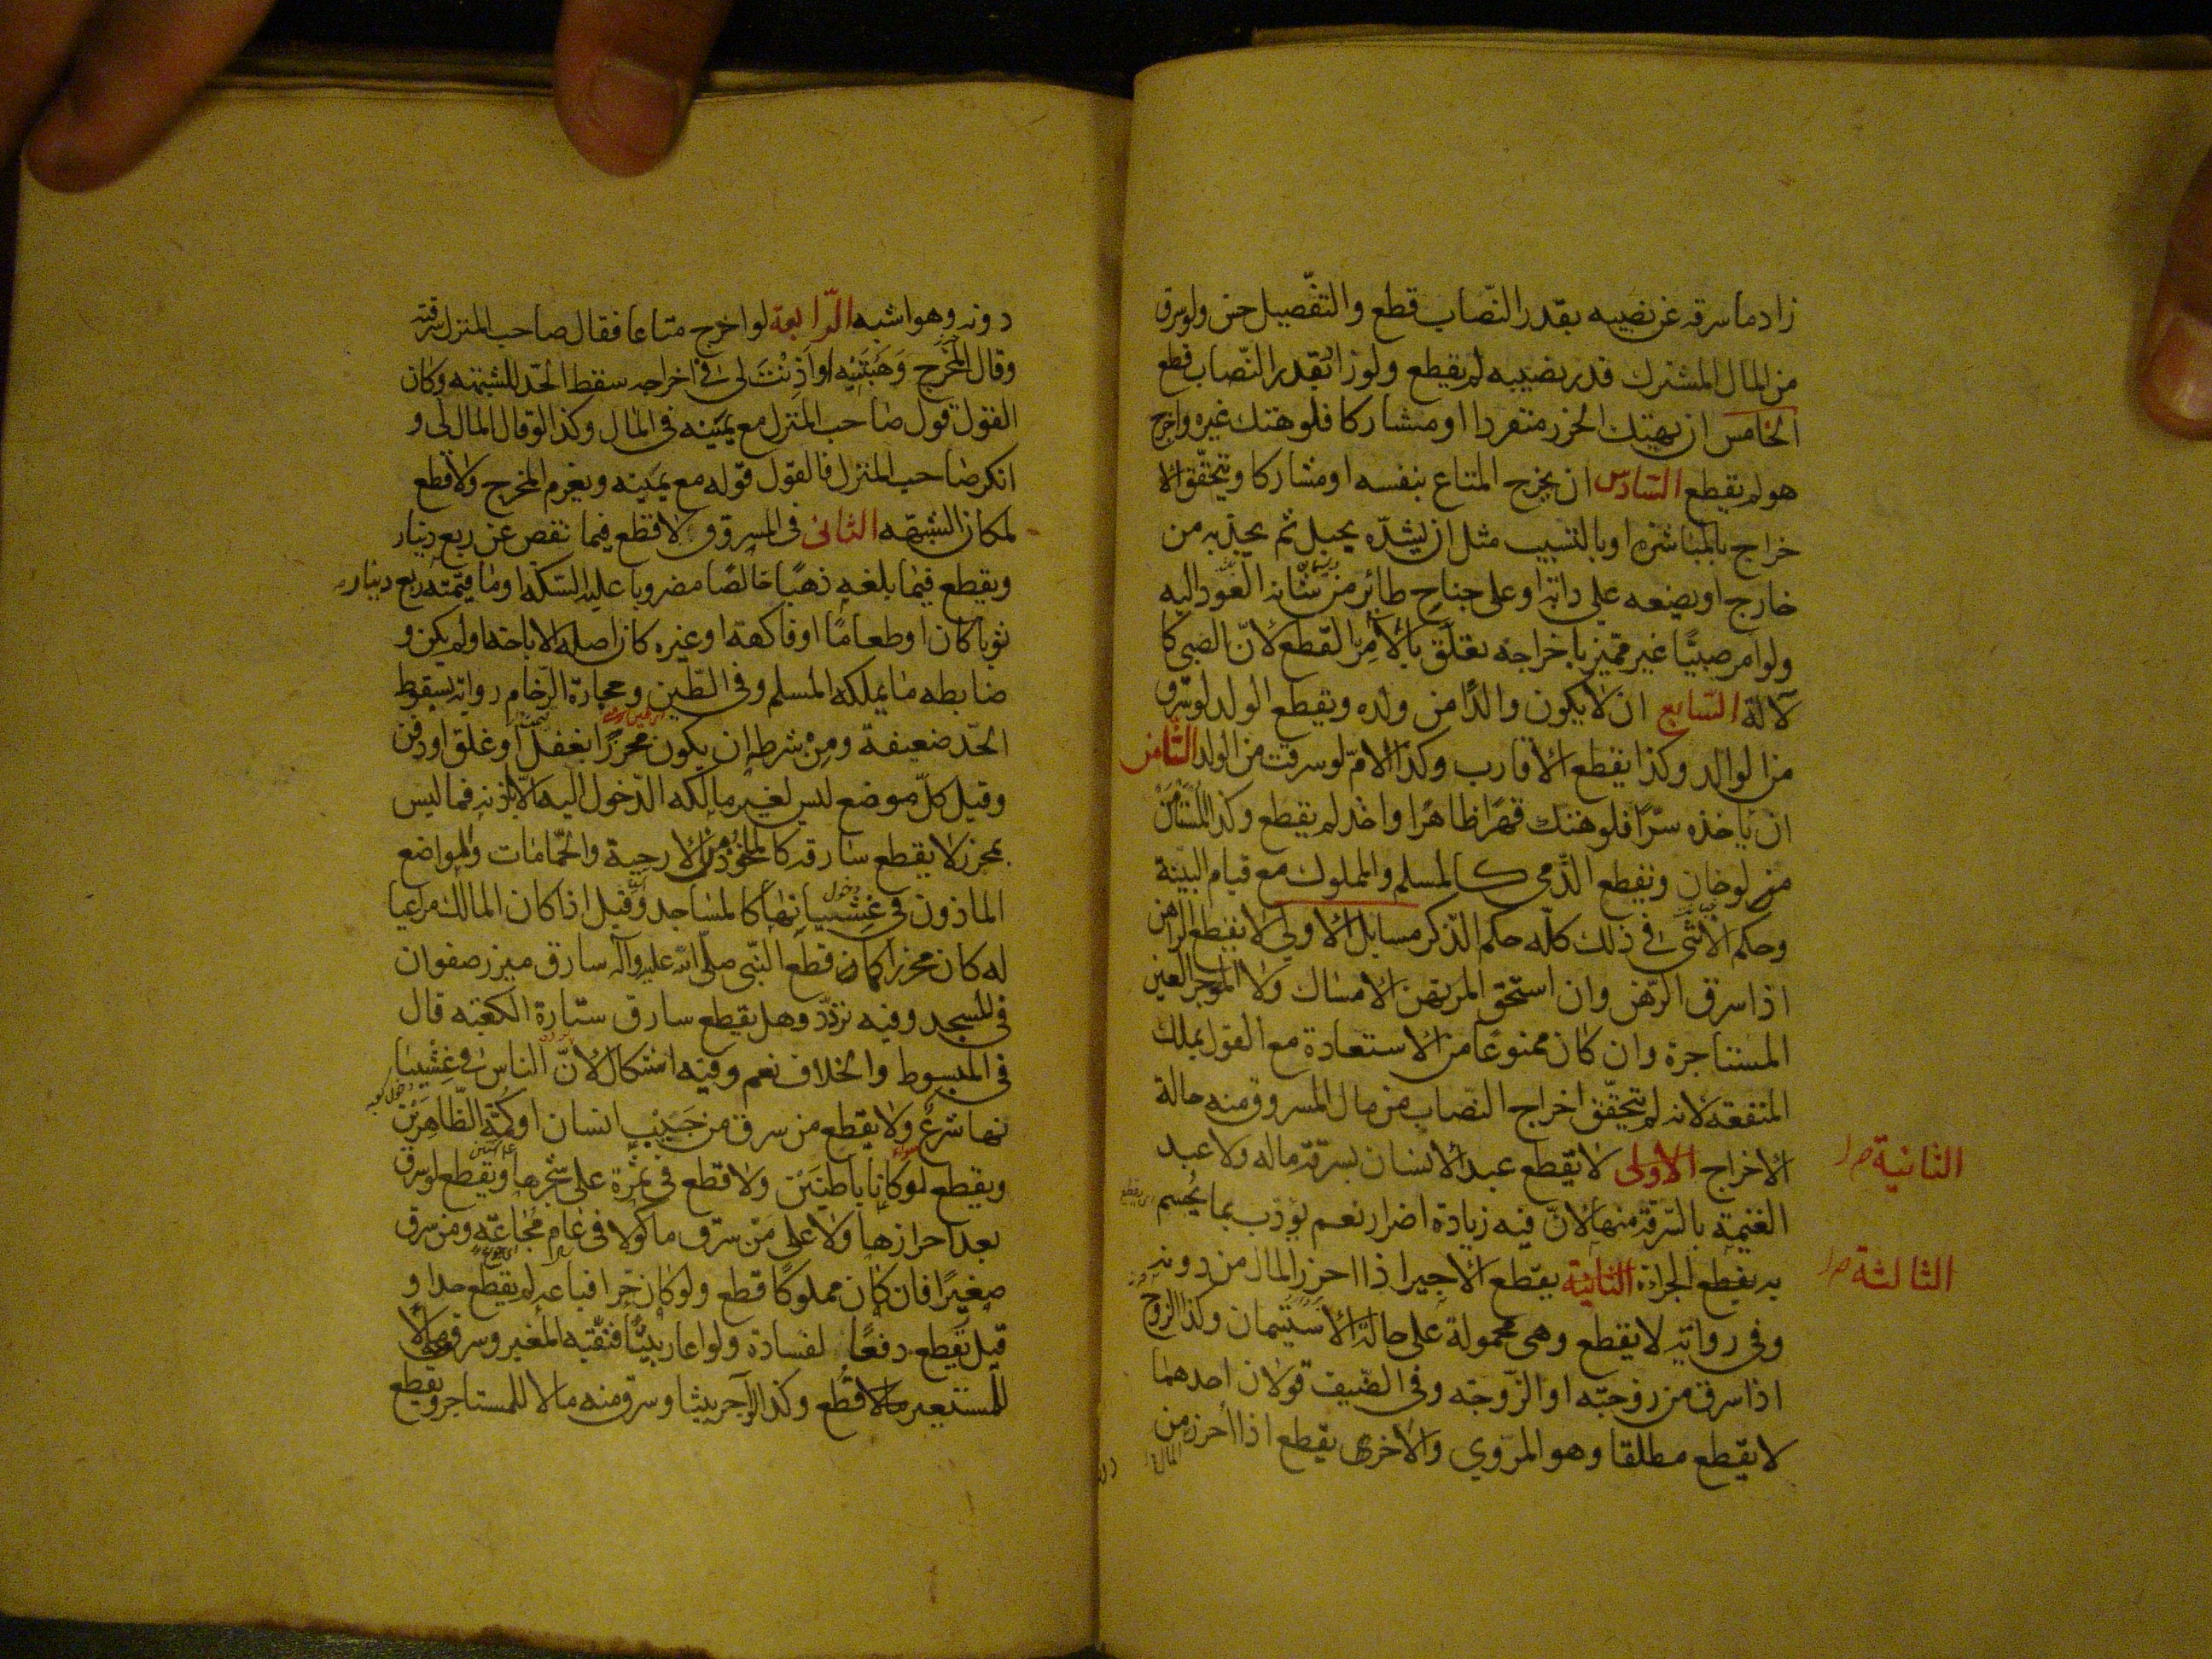 زاد ما سرقه عن نصيبه بقدر النّصاب قطع والتّفصيل حسن ولو سرق
من المال المشترك قدر نصيبه لم يقطع ولو زاد بقدر النّصاب قطع
الخامس ان يهتك الحرز متفردا او مشاركا فلو هتك غيره واخرج
هو لم يقطع السّادس ان يخرج المتاع بنفسه او مشاركا ويتحقّق الا
خراج بالمباشرة او بالتسبيب مثل ان يشدّه بحبل ثم يجذبه من
خارج او يضعه على دابّة او على جناح طائر من شانه العود اليه
ولو امر صبيّا غير مميّز باخراجه تعلّق بالامر القطع لانّ الصبى كا
لآلة السّابع ان لا يكون والدًا من ولده ويقطع الولد لو سرق
من الوالد وكذا يقطع الاقارب وكذا الامّ لو سرقت من الولد الثّامن
ان ياخذه سرّا فلو هتك قهرًا ظاهرًا واخذ لم يقطع وكذا المستامن
لو خان ويقطع الذّمى كالمسلم والمملوك مع قيام البيّنة
وحكم الانثى فى ذلك كلّه حكم الذّكر مسايل الاولى لا يقطع الراهن
اذا سرق الرّهن وان استحق المرتهن الامساك ولا الموجر العين
المستاجرة وان كان ممنوعًا من الاستعادة مع القول بملك
المنفعة لانه لم يتحقّق اخراج النصاب من مال المسروق منه حالة
الاخراج الاولى لا يقطع عبد الانسان بسرقة ماله ولا عبد
الثانية
الغنيمة بالسّرقة منها لانّ فيه زيادة اضرار نعم يؤدّب بما يحسم
به يقطع الجراة الثانية يقطع الاجير اذا احرز المال من دونه
الثالثة
وفى رواية لا يقطع وهى محمولة على حالة الاستيمان وكذا الزّوج
اذا سرق من زوجته او الزّوجة وفى الضّيف قولان احدهما
لا يقطع مطلقا وهو المروي والاخرى يقطع اذا احرز من
دونه وهو اشبه الرّابعة لو اخرج متاعا فقال صاحب المنزل سرقته
وقال المخرج وهبتنيه او اذنت لى فى اخراجه سقط الحدّ للشبهة وكان
القول قول صاحب المنزل مع يمينه فى المال وكذا لو قال المال لى و
انكر صاحب المنزل فالقول قوله مع يمينه ويغرم المخرج ولا قطع
لمكان الشبهة الثانى فى المسروق لا قطع فيما نقص عن ربع دينار
ويقطع فيما بلغه ذهبًا خالصًا مضروبا عليه السّكة او ما قيمته ربع دينار
ثوبا كان او طعامًا او فاكهة او غيره كان اصله الاباحة او لم يكن و
ضابطه ما يملكه المسلم وفى الطّين وحجارة الرّخام رواية بسقوط
الحدّ ضعيفة ومن شرطه ان يكون محرزًا بقفل او غلق او دفن
وقيل كلّ موضع ليس لغير مالكه الدّخول اليه الّا باذنه فما ليس
بمحرز لا يقطع سارقه كالماخوذ من الارحية والحمّامات والمواضع
الماذون فى غشيانها كالمساجد وقيل اذا كان المالك مراعيا
له كان محرزًا كما قطع النّبى صلّى الله عليه وآله سارق ميزر صفوان
فى المسجد وفيه تردّد وهل يقطع سارق ستارة الكعبة قال
فى المبسوط والخلاف نعم وفيه اشكال لانّ الناس فى غشيا
نها شرع ولا يقطع من سرق من جيب انسان او كمّه الظّاهرين
ويقطع لو كانا باطنين ولا قطع فى ثمرة على شجرها ويقطع لو سرق
بعد احرازها ولا على من سرق ماكولا فى عام مجاعة ومن سرق
صغيرًا فان كان مملوكًا قطع ولو كان حرا فباعه لم يقطع حدا و
قيل يقطع دفعًا لفساده ولو اعار بيتًا فنقبه المعير وسرق منه مالا
للمستعير قطع وكذا لو آجر بيتا وسرق منه مالا للمستاجر ويقطع